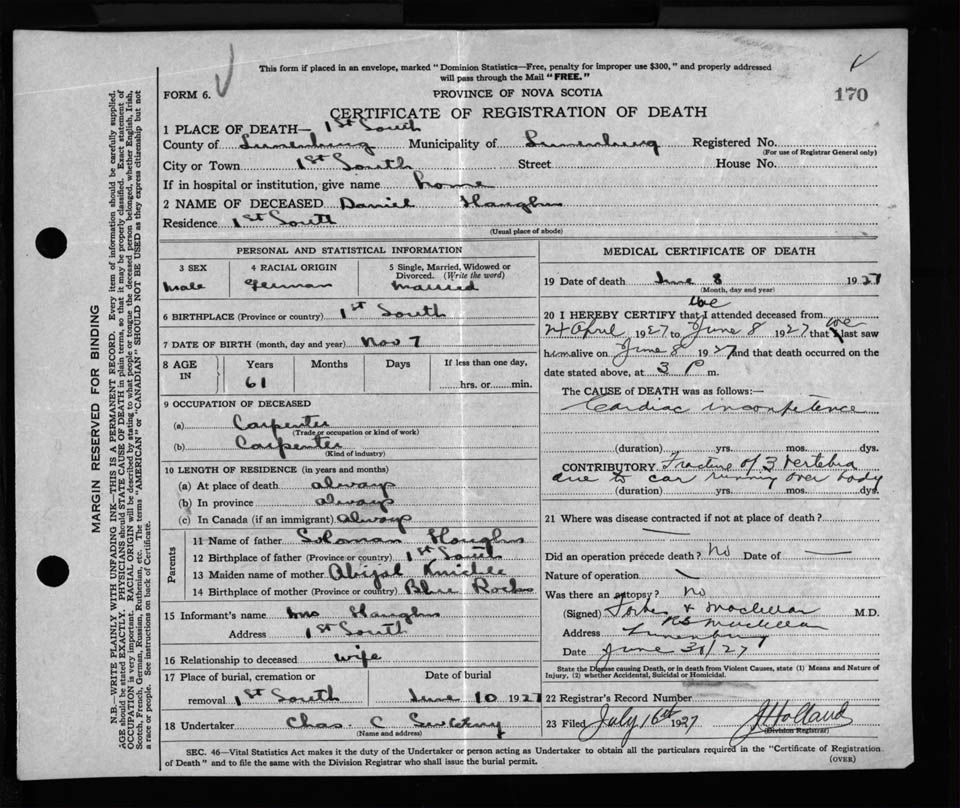 This form if placed in an envelope, marked "Dominion Statistics—Free, penalty for improper use $300," and properly addressed
will pass through the Mail "FREE."
FORM 6.
PROVINCE OF NOVA SCOTIA
170
CERTIFICATE OF REGISTRATION OF DEATH
1 PLACE OF DEATH— 1st South
County of Lunenburg Municipality of Lunenburg Registered No.
(For use of Registrar General only)
City or Town 1st South Street House No.
If in hospital or institution, give name home
2 NAME OF DECEASED Daniel
Residence 1st South
(Usual place of abode)
PERSONAL AND STATISTICAL INFORMATION
3 SEX 4 RACIAL ORIGIN 5 Single, Married, Widowed or
Divorced. (Write the word)
Male German Married
6 BIRTHPLACE (Province or country) 1st South
7 DATE OF BIRTH (month, day and year) Nov 7
8 AGE IN Years Months Days If less than one day,
61 hrs. or min.
9 OCCUPATION OF DECEASED
(a) Carpenter
(Trade or occupation or kind of work)
(b) Carpenter
(Kind of industry)
10 LENGTH OF RESIDENCE (in years and months)
(a) At place of death always
(b) In province always
(c) In Canada (if an immigrant) always
Parents
11 Name of father Soloman
12 Birthplace of father (Province or country) 1st South
13 Maiden name of mother
14 Birthplace of mother (Province or country) Blue Rocks
15 Informant's name Mrs
Address 1st South
16 Relationship to deceased wife
17 Place of burial, cremation or Date of burial
removal 1st South June 10 1927
18 Undertaker Chas. C
(Name and address)
MEDICAL CERTIFICATE OF DEATH
19 Date of death June 8 1927
(Month, day and year)
we
20 I HEREBY CERTIFY that I attended deceased from
24 April 1927 to June 8 1927 that we last saw
him alive on June 8 1927 and that death occurred on the
date stated above, at 3 P m.
The CAUSE of DEATH was as follows:—
Cardiac incompetence
(duration) yrs. mos. dys.
CONTRIBUTORY. Fracture of 3 vertebra
due to car running over body
(duration) yrs. mos. dys.
21 Where was disease contracted if not at place of death?
Did an operation precede death? No Date of —
Nature of operation
Was there an autopsy? No
(Signed) & Maclellan M.D.
Maclellan
Address Lunenburg
Date June 30/27
State the Disease causing Death, or in death from Violent Causes, state (1) Means and Nature of
Injury, (2) whether Accidental, Suicidal or Homicidal.
22 Registrar's Record Number
23 Filed July 16th 1927 Holland
(Division Registrar)
SEC. 46—Vital Statistics Act makes it the duty of the Undertaker or person acting as Undertaker to obtain all the particulars required in the "Certificate of Registration
of Death" and to file the same with the Division Registrar who shall issue the burial permit.
(OVER)
MARGIN RESERVED FOR BINDING
N.B.—WRITE PLAINLY WITH UNFADING INK—THIS IS A PERMANENT RECORD. Every item of information should be carefully supplied.
AGE should be stated EXACTLY. PHYSICIANS should STATE CAUSE OF DEATH in plain terms, so that it may be properly classified. Exact statement of
OCCUPATION is very important. RACIAL ORIGIN will be described by stating to what people or tongue the deceased person belonged, whether English, Irish,
Scotch, French, German, Russian, Ruthenian, etc. The terms "AMERICAN" or "CANADIAN" SHOULD NOT BE USED as they express citizenship but not
a race or people. See instructions on back of Certificate.